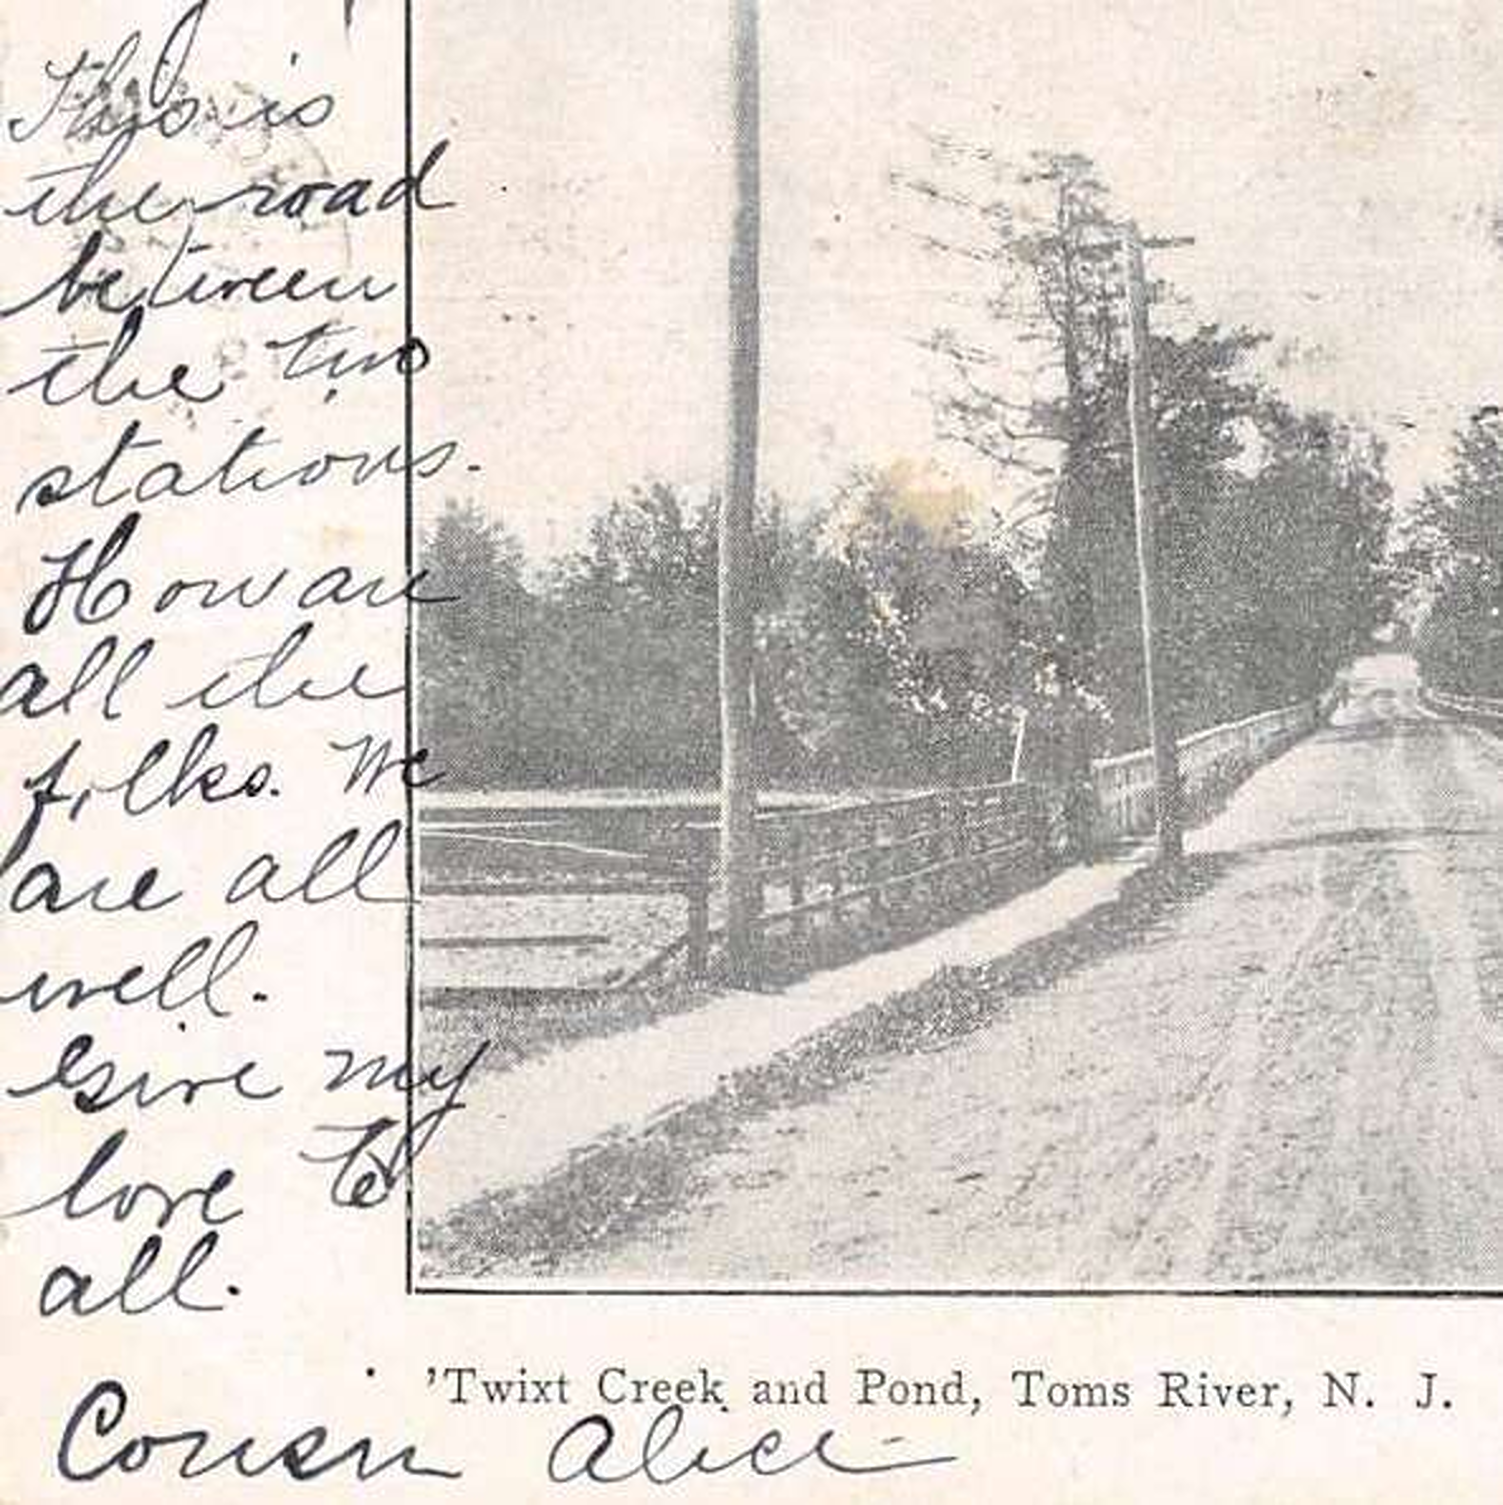 This is
the road
between
the two
stations.
How are
all the
folks. We
are all
well.
Give my
love to
all.
'Twixt Creek and Pond, Toms River, N. J.
Cousin Alice